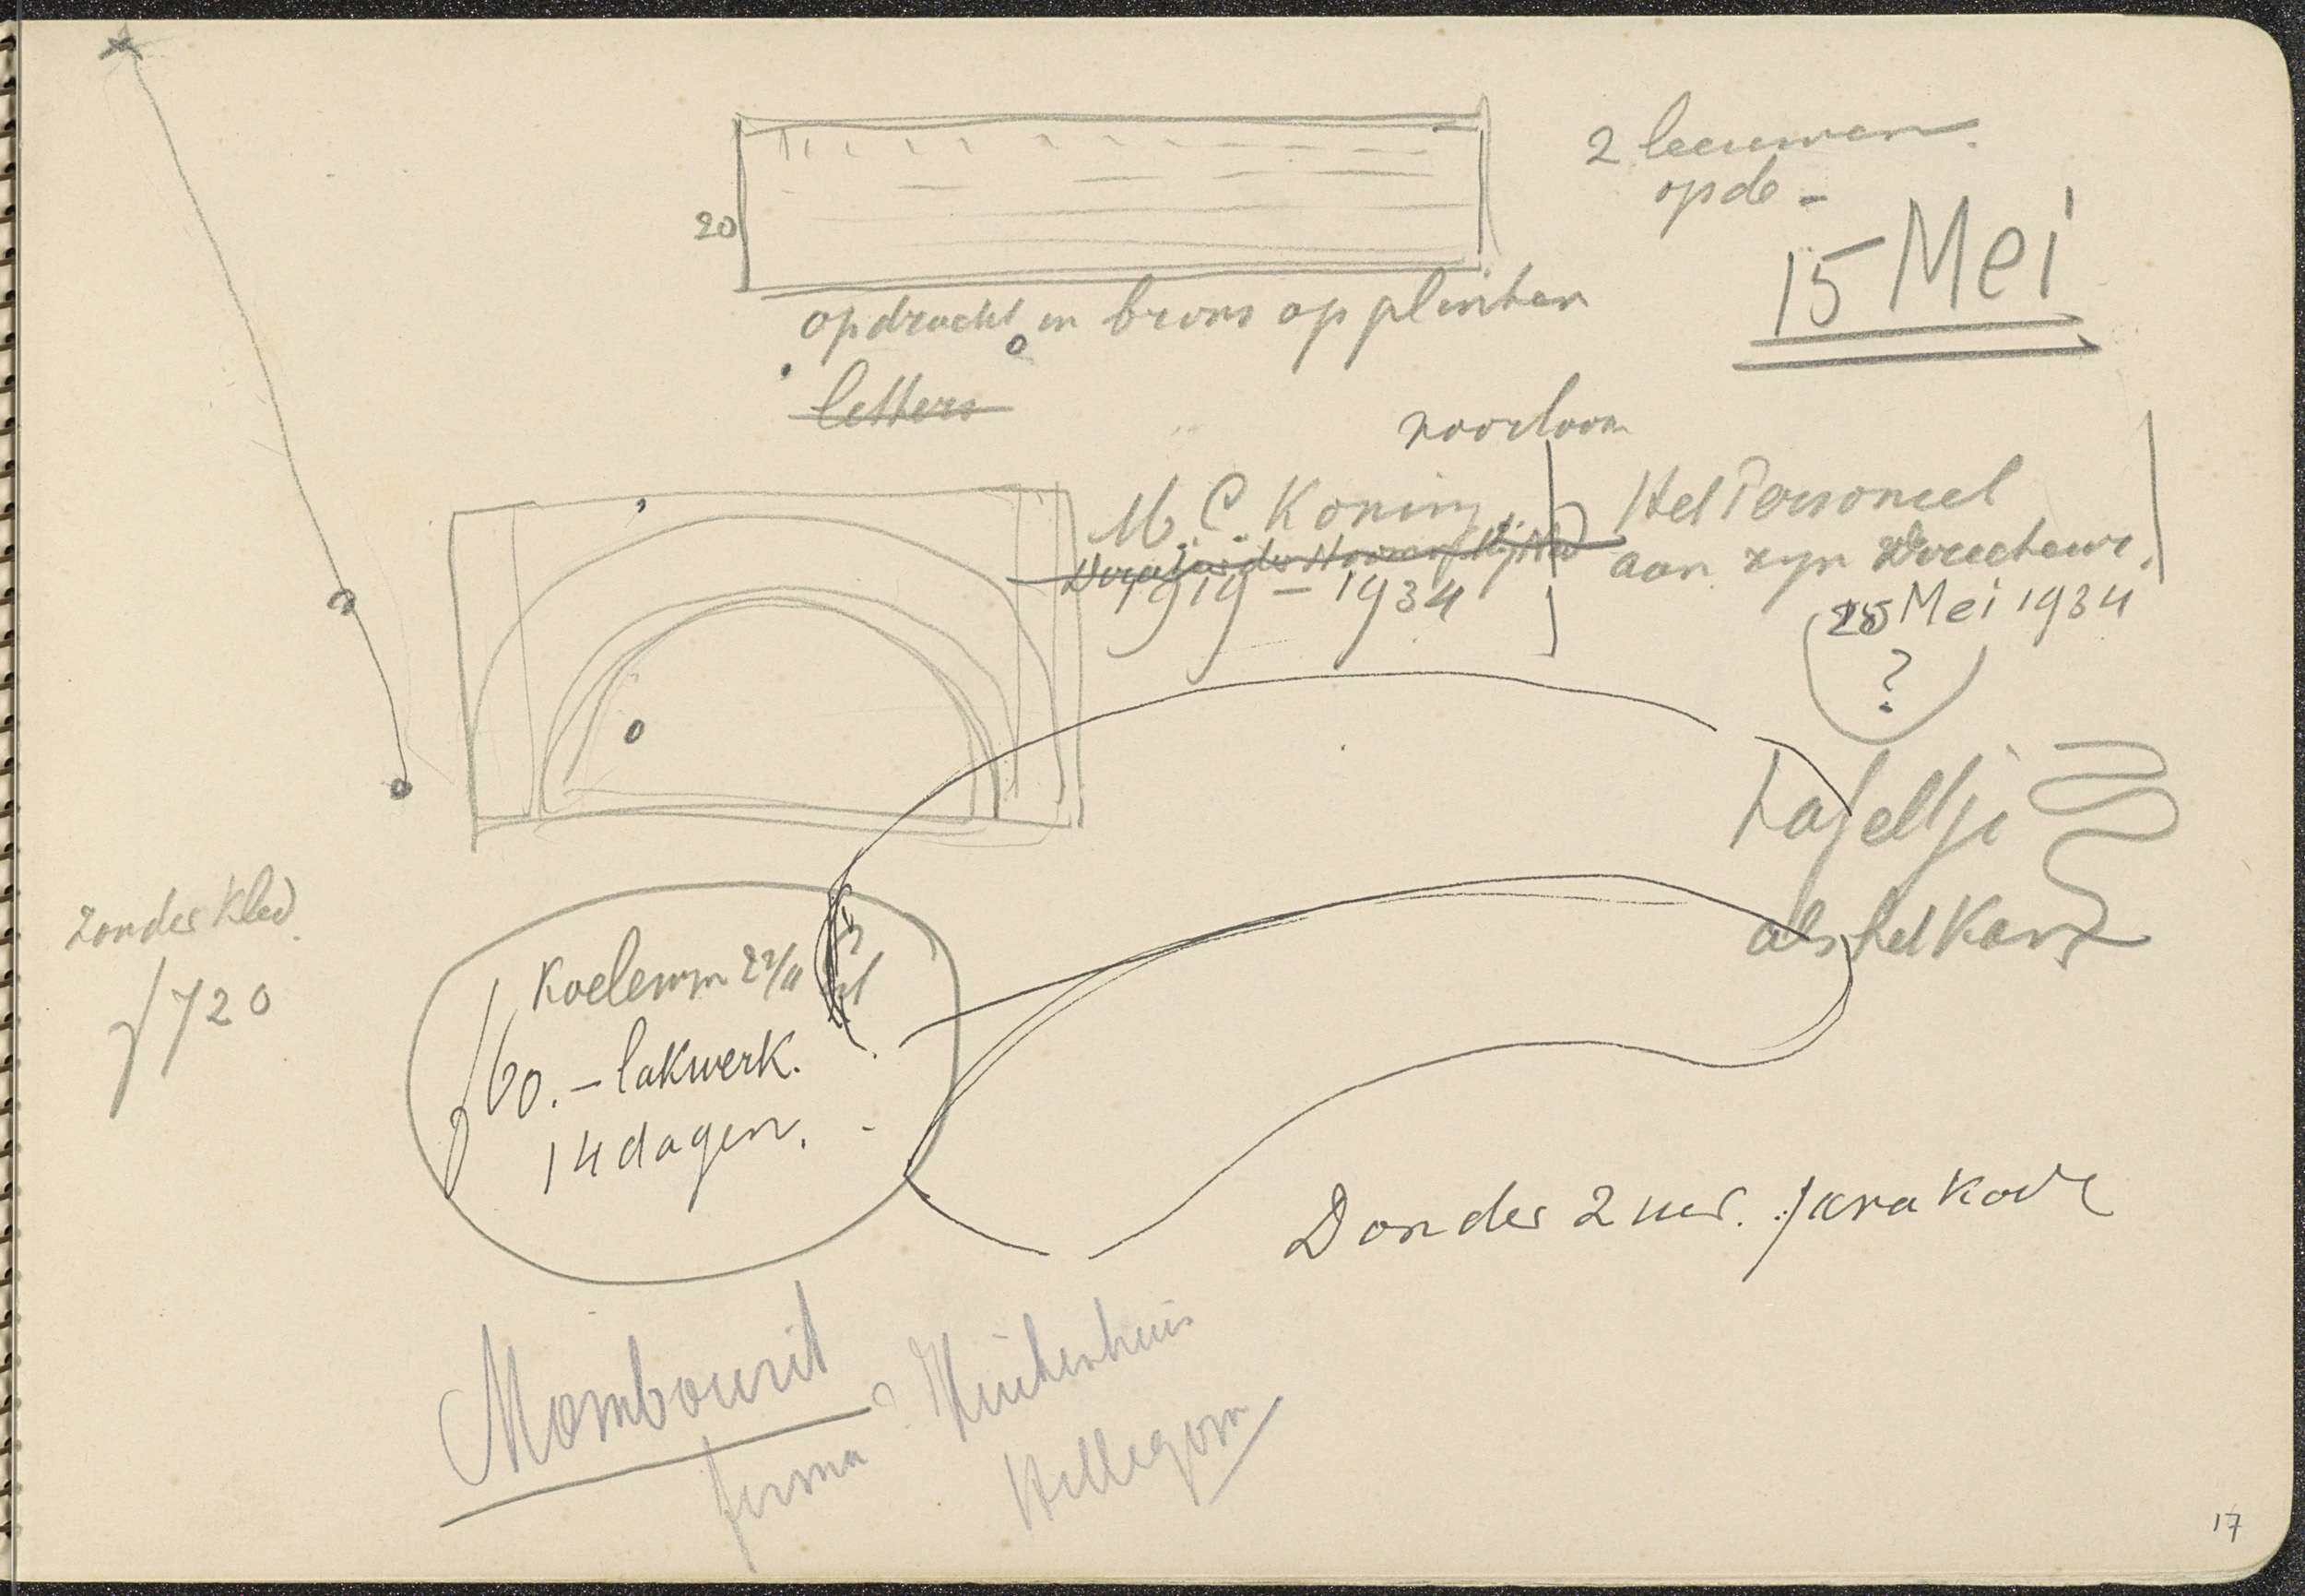 2 leeuwen
op de -
15 Mei
20
opdracht in brons op plinten
letters
voorloon
M. C. Koning
1919 - 1934
Het Personeel
aan zyn Directeur.
25 Mei 1934
?
tafeltji
als het kan
zonder kled.
f 720
Koelemm 27/11
f 60.- lakwerk.
14 dagen.
Donder 2 uur.
Mombourit
firma
Hillegom
17